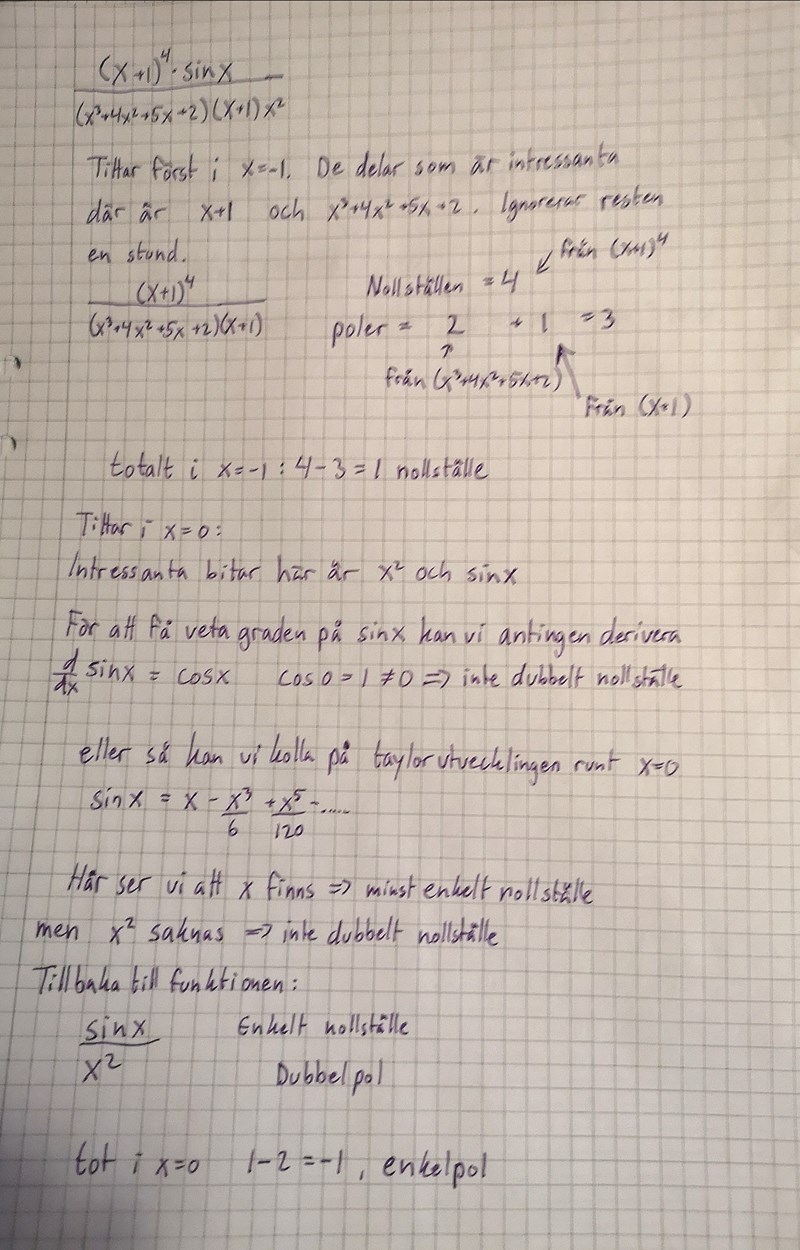 (x+1)⁴·sinx
(x³+4x²+5x+2)(x+1)x²
Tittar först i x=-1. De delar som är intressanta
där är x+1 och x³+4x²+5x+2. Ignorerar resten
en stund.
från (x+1)⁴
(x+1)⁴
Nollställen = 4
(x³+4x²+5x+2)(x+1)
poler = 2 + 1 = 3
från (x³+4x²+5x+2)
från (x+1)
totalt i x=-1: 4-3=1 nollställe
Tittar i x=0:
Intressanta bitar här är x² och sinx
För att få veta graden på sinx kan vi antingen derivera
d/dx sinx = cosx cos0=1≠0 => inte dubbelt nollställe
eller så kan vi kolla på taylorutvecklingen runt x=0
sinx = x - x³/6 + x⁵/120 - .....
Här ser vi att x finns => minst enkelt nollställe
men x² saknas => inte dubbelt nollställe
Tillbaka till funktionen:
sinx Enkelt nollställe
x² Dubbelpol
tot i x=0 1-2=-1, enkelpol